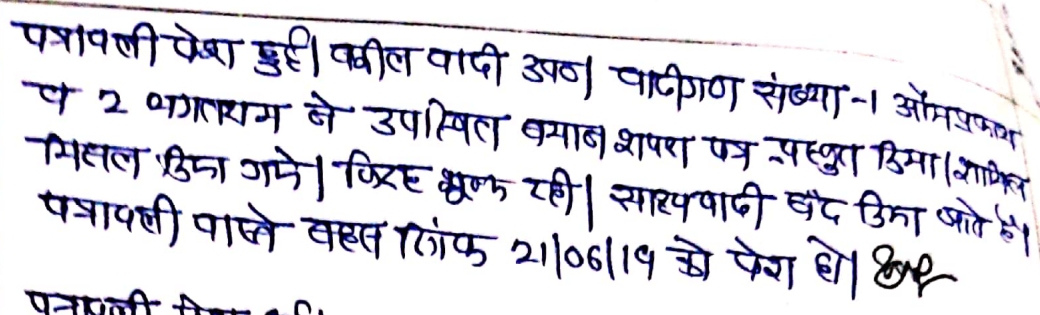 पत्रावली पेश हुई। वकील वादी उप०। वादीगण संख्या-1 ओमप्रकाश
व 2 भगतराम ने उपस्थित बयान शपथ पत्र प्रस्तुत किया। शामिल
मिसल किया गये। जिरह शून्य रही। साक्ष्य वादी बंद किया जाते है।
पत्रावली वास्ते बहस दिनांक 21/06/19 को पेश हो।
पत्रावली